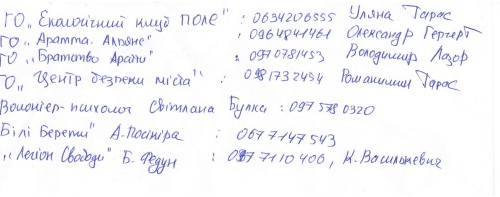 ГО „Екологічний клуб ПОЛЕ" : 0634206555 Уляна Тарас
ГО „Аратта. Альянс" : 0964841461 Олександр Гергерт
ГО „Братство Арати" : 0970781453 Володимир Лазор
ГО „Центр безпеки міста" : 0981732454 Романишин Тарас
Волонтер-психолог Світлана Булка : 097 578 0320
Білі Берети" А. : 067 7147 543
„Легіон Свободи" Б. Федун : 097 7110 406, К. Василькевич